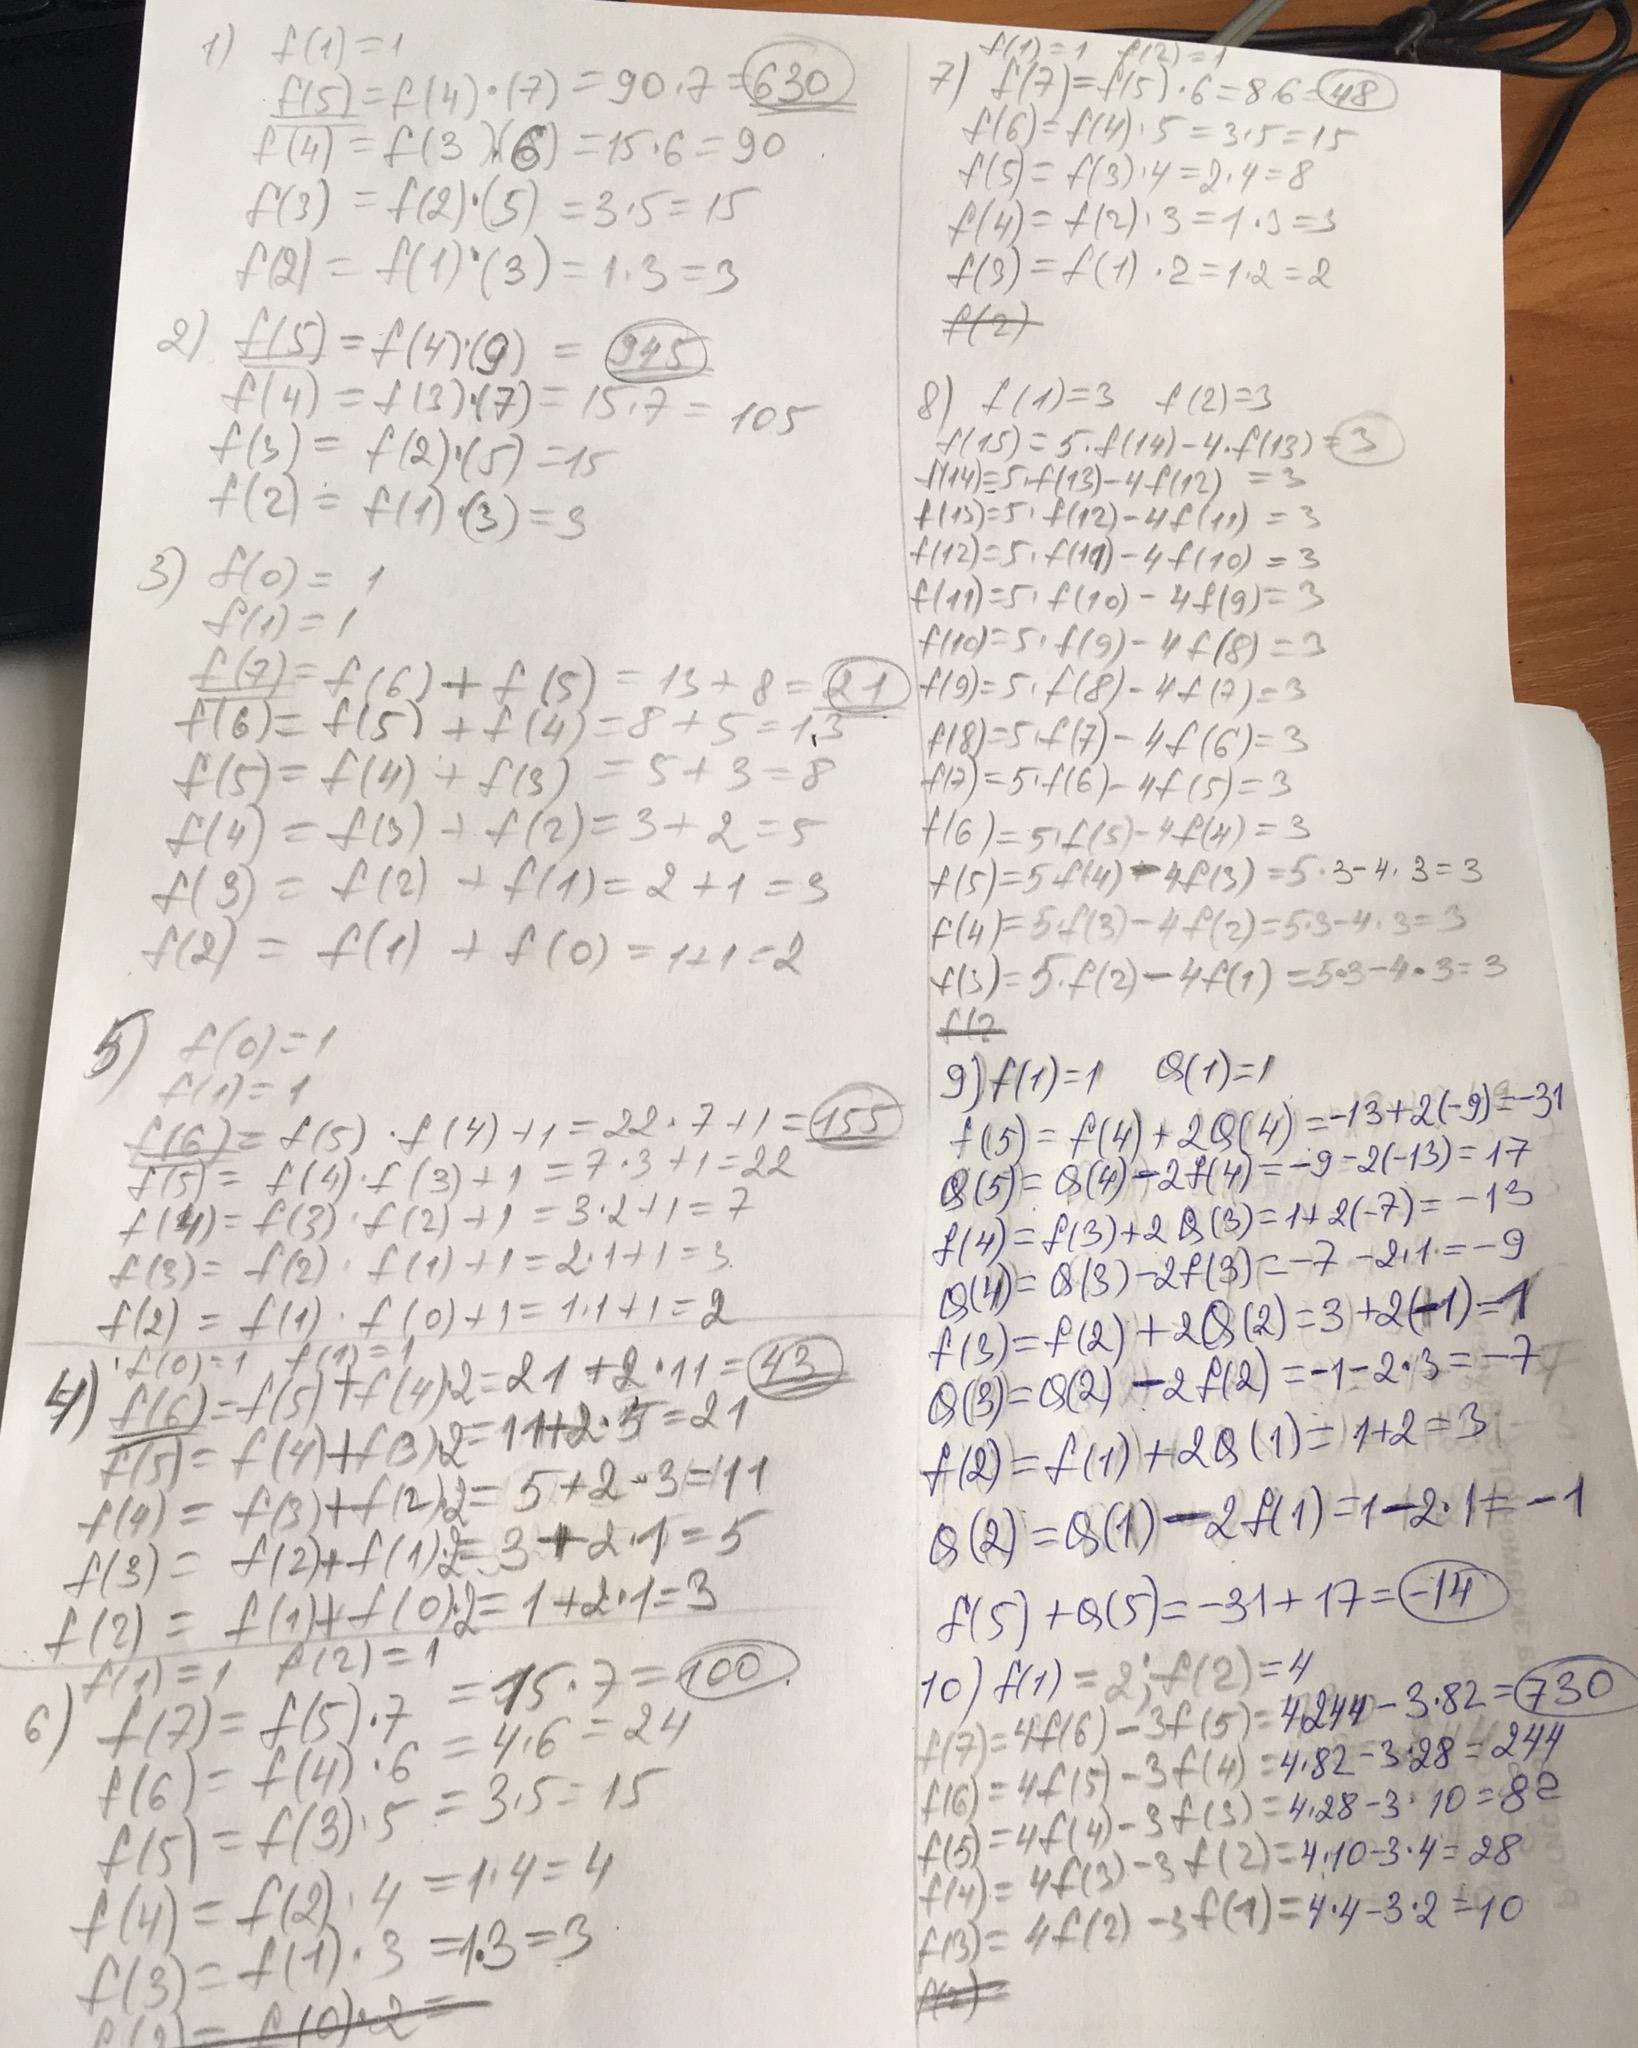 1) f(1)=1
f(5)=f(4)·(7)=90·7=630
f(4)=f(3)·(6)=15·6=90
f(3)=f(2)·(5)=3·5=15
f(2)=f(1)·(3)=1·3=3
2) f(5)=f(4)·(9)=945
f(4)=f(3)·(7)=15·7=105
f(3)=f(2)·(5)=15
f(2)=f(1)·(3)=3
3) f(0)=1
f(1)=1
f(7)=f(6)+f(5)=13+8=21
f(6)=f(5)+f(4)=8+5=13
f(5)=f(4)+f(3)=5+3=8
f(4)=f(3)+f(2)=3+2=5
f(3)=f(2)+f(1)=2+1=3
f(2)=f(1)+f(0)=1+1=2
5) f(0)=1
f(1)=1
f(6)=f(5)·f(4)+1=22·7+1=155
f(5)=f(4)·f(3)+1=7·3+1=22
f(4)=f(3)·f(2)+1=3·2+1=7
f(3)=f(2)·f(1)+1=2·1+1=3
f(2)=f(1)·f(0)+1=1·1+1=2
4) f(0)=1 f(1)=1
f(6)=f(5)+f(4)·2=21+2·11=43
f(5)=f(4)+f(3)·2=11+2·5=21
f(4)=f(3)+f(2)·2=5+2·3=11
f(3)=f(2)+f(1)·2=3+2·1=5
f(2)=f(1)+f(0)·2=1+2·1=3
6) f(1)=1 f(2)=1
f(7)=f(5)·7=15·7=100
f(6)=f(4)·6=4·6=24
f(5)=f(3)·5=3·5=15
f(4)=f(2)·4=1·4=4
f(3)=f(1)·3=1·3=3
f(2)=f(0)·2=
f(1)=1 f(2)=1
7) f(7)=f(5)·6=8·6=48
f(6)=f(4)·5=3·5=15
f(5)=f(3)·4=2·4=8
f(4)=f(2)·3=1·3=3
f(3)=f(1)·2=1·2=2
f(2)
8) f(1)=3 f(2)=3
f(15)=5·f(14)-4·f(13)=3
f(14)=5·f(13)-4f(12)=3
f(13)=5·f(12)-4f(11)=3
f(12)=5·f(11)-4f(10)=3
f(11)=5·f(10)-4f(9)=3
f(10)=5·f(9)-4f(8)=3
f(9)=5·f(8)-4f(7)=3
f(8)=5·f(7)-4f(6)=3
f(7)=5·f(6)-4f(5)=3
f(6)=5·f(5)-4f(4)=3
f(5)=5f(4)-4f(3)=5·3-4·3=3
f(4)=5f(3)-4f(2)=5·3-4·3=3
f(3)=5·f(2)-4f(1)=5·3-4·3=3
f(2
9) f(1)=1 Q(1)=1
f(5)=f(4)+2Q(4)=-13+2(-9)=-31
Q(5)=Q(4)-2f(4)=-9-2(-13)=17
f(4)=f(3)+2Q(3)=1+2(-7)=-13
Q(4)=Q(3)-2f(3)=-7-2·1=-9
f(3)=f(2)+2Q(2)=3+2(-1)=1
Q(3)=Q(2)-2f(2)=-1-2·3=-7
f(2)=f(1)+2Q(1)=1+2=3
Q(2)=Q(1)-2f(1)=1-2·1=-1
f(5)+Q(5)=-31+17=-14
10) f(1)=2; f(2)=4
f(7)=4f(6)-3f(5)=4·244-3·82=730
f(6)=4f(5)-3f(4)=4·82-3·28=244
f(5)=4f(4)-3f(3)=4·28-3·10=82
f(4)=4f(3)-3f(2)=4·10-3·4=28
f(3)=4f(2)-3f(1)=4·4-3·2=10
f(2)=